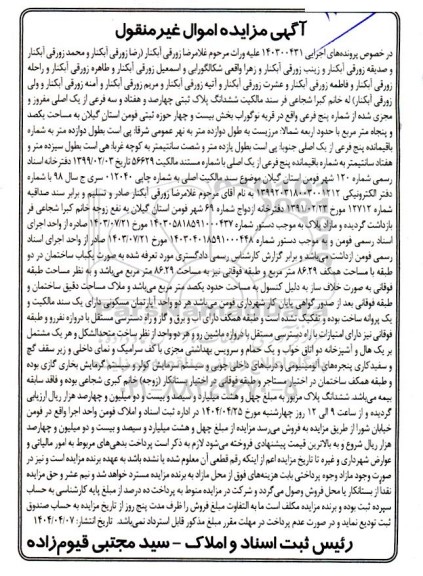 آگهی مزایده اموال غیر منقول
در خصوص پرونده‌های اجرایی ۱۴۰۳۰۰۴۳۱ علیه وراث مرحوم غلامرضا زورقی آبکنار (رضا زورقی آبکنار و محمد زورقی آبکنار
و صدیقه زورقی آبکنار و زینب زورقی آبکنار و زهرا واقعی شکالگورابی و اسمعیل زورقی آبکنار و طاهره زورقی آبکنار و راحله
زورقی آبکنار و فاطمه زورقی آبکنار و عشرت زورقی آبکنار و آتیه زورقی آبکنار و مریم زورقی آبکنار و آمنه زورقی آبکنار و ولی
زورقی آبکنار) له خانم کبرا شجاعی فر سند مالکیت ششدانگ پلاک ثبتی چهارصد و هفتاد و سه فرعی از یک اصلی مفروز و
مجزی شده از شماره پنج فرعی واقع در قریه نوگوراب بخش بیست و چهار حوزه ثبتی فومن استان گیلان به مساحت یکصد
و پنجاه متر مربع با حدود اربعه شمالا: مرزیست به طول دوازده متر به نهر عمومی شرقا: پی است بطول دوازده متر به شماره
باقیمانده پنج فرعی از یک اصلی جنوبا: پی است بطول یازده متر و شصت سانتیمتر به کوچه غربا: پی است بطول سیزده متر و
هفتاد سانتیمتر به شماره باقیمانده پنج فرعی از یک اصلی با شماره مستند مالکیت ۵۶۶۲۹ تاریخ ۱۳۹۹/۰۲/۰۳ دفترخانه اسناد
رسمی شماره ۱۲۰ شهر فومن استان گیلان موضوع سند مالکیت اصلی به شماره چاپی ۰۱۲۰۴۰ سری ج سال ۹۸ با شماره
دفتر الکترونیکی ۱۳۹۹۲۰۳۱۸۰۰۳۰۰۱۳۱۲ به نام آقای مرحوم غلامرضا زورقی آبکنار صادر و تسلیم و برابر سند صداقیه
شماره ۱۲۷۱۲ مورخ ۱۳۹۸/۰۲/۲۳ دفترخانه ازدواج شماره ۶۹ شهر فومن استان گیلان به نفع زوجه خانم کبرا شجاعی فر
بازداشت گردیده و مازاد پلاک به موجب دستور شماره ۱۴۰۳۰۵۸۱۸۵۹۱۰۰۰۴۳۷ مورخ ۱۴۰۳/۰۷/۲۱ صادره از واحد اجرای
اسناد رسمی فومن و به موجب دستور شماره ۱۴۰۳۰۴۰۱۸۵۹۱۰۰۰۴۴۸ مورخ ۱۴۰۳/۰۷/۲۱ صادره از واحد اجرای اسناد
رسمی فومن بازداشت می‌باشد و برابر گزارش کارشناس رسمی دادگستری مورد تعرفه شده به صورت یکباب ساختمان در دو
طبقه با مساحت همکف ۸۶.۲۹ متر مربع و طبقه فوقانی نیز به مساحت ۸۶.۲۹ متر مربع می‌باشد و به نظر مساحت طبقه
فوقانی به صورت خلاف ساز به دلیل کنسول به مساحت حدود یکصد متر مربع می‌باشد و ملاک مساحت دقیق ساختمان و
طبقه فوقانی بعد از صدور گواهی پایان کار شهرداری فومن می‌باشد هر دو واحد آپارتمان مسکونی دارای یک سند مالکیت و
یک پروانه ساخت بوده و تفکیک نشده است طبقه همکف دارای آب و برق و گاز و راه دسترسی مستقل با دروازه نفررو و طبقه
فوقانی نیز دارای امتیازات با راه دسترسی مستقل با دروازه ماشین رو و هر دو واحد از نظر ساخت متحدالشکل و هر یک مشتمل
بر یک هال و آشپزخانه دو اتاق خواب و یک حمام و سرویس بهداشتی مجزی با کف سرامیک و نمای داخلی و زیر سقف گچ
و سفیدکاری پنجره‌های آلومینیومی و درب‌های داخلی چوبی و سیستم سرمایش کولر و سیستم گرمایش بخاری گازی بوده
و طبقه همکف ساختمان در اختیار مستاجر و طبقه فوقانی در اختیار بستانکار (زوجه) خانم کبری شجاعی بوده و فاقد سابقه
بیمه می‌باشد ششدانگ پلاک مزبور به مبلغ چهل و هشت میلیارد و سیصد و بیست و دو میلیون و چهارصد هزار ریال ارزیابی
گردیده و از ساعت ۹ الی ۱۲ روز چهارشنبه مورخ ۱۴۰۴/۰۴/۲۵ در اداره ثبت اسناد و املاک فومن واحد اجرا واقع در فومن
خیابان شورا از طریق مزایده به فروش می‌رسد مزایده از مبلغ چهل و هشت میلیارد و سیصد و بیست و دو میلیون و چهارصد
هزار ریال شروع و به بالاترین قیمت پیشنهادی فروخته می‌شود لازم به ذکر است پرداخت بدهی‌های مربوط به امور مالیاتی و
عوارض شهرداری و غیره تا تاریخ مزایده اعم از اینکه رقم قطعی آن معلوم شده یا نشده باشد به عهده برنده مزایده است و نیز در
صورت وجود مازاد وجوه پرداختی بابت هزینه‌های فوق از محل مازاد به برنده مزایده مسترد خواهد شد و نیم عشر و حق مزایده
نقدا از بستانکار یا محل فروش وصول می‌گردد و شرکت در مزایده منوط به پرداخت ده درصد از مبلغ پایه کارشناسی به حساب
سپرده ثبت بوده و برنده مزایده مکلف است ما به التفاوت مبلغ فروش را ظرف مدت پنج روز از تاریخ مزایده به حساب صندوق
ثبت تودیع نماید و در صورت عدم پرداخت در مهلت مقرر مبلغ مذکور قابل استرداد نمی‌باشد. تاریخ انتشار: ۱۴۰۴/۰۴/۰۷
رئیس ثبت اسناد و املاک – سید مجتبی قیوم‌زاده